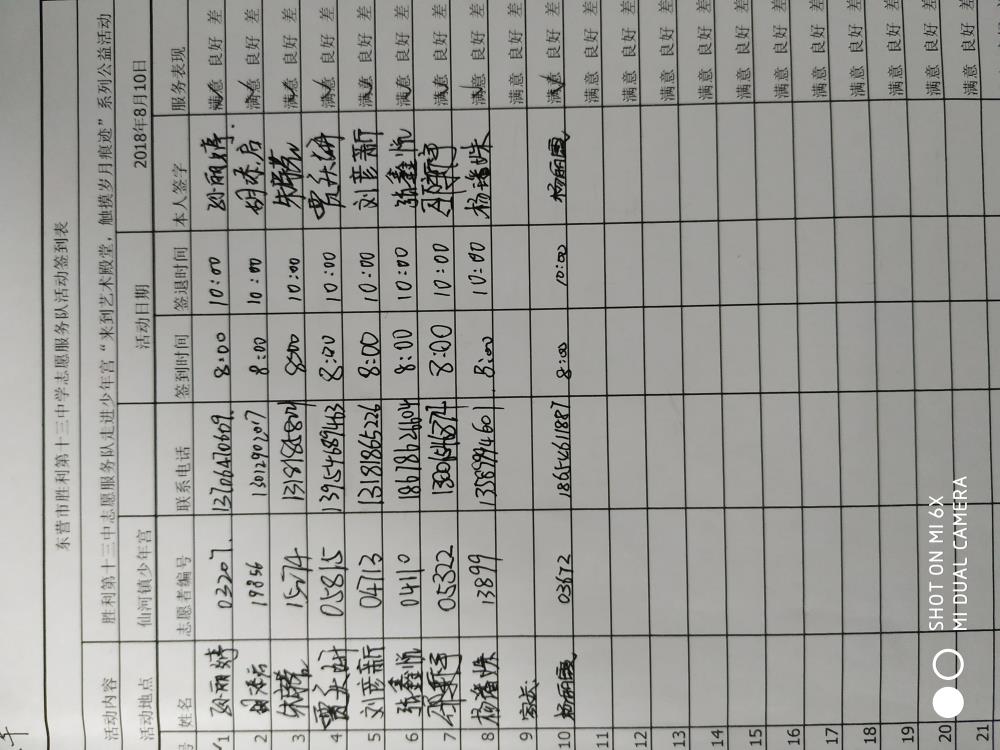 东营市胜利第十三中学志愿服务队活动签到表
活动内容 胜利第十三中志愿服务队走进少年宫“来到艺术殿堂，触摸岁月痕迹”系列公益活动
活动地点 仙河镇少年宫 活动日期 2018年8月10日
号 姓名 志愿者编号 联系电话 签到时间 签退时间 本人签字 服务表现
1 孙丽婷 03207 13706470669 8:00 10:00 孙丽婷 满意 良好 差
2 19856 13012902017 8:00 10:00 满意 良好 差
3 15074 8:00 10:00 满意 良好 差
4 05815 13954689463 8:00 10:00 满意 良好 差
5 刘彦新 04713 13181865226 8:00 10:00 刘彦新 满意 良好 差
6 张鑫悦 04110 18678626604 8:00 10:00 张鑫悦 满意 良好 差
7 05322 8:00 10:00 满意 良好 差
8 杨璠姝 13899 13589994601 8:00 10:00 杨璠姝 满意 良好 差
9 家长: 满意 良好 差
10 杨丽霞 03672 18654611887 8:00 10:00 杨丽霞 满意 良好 差
11 满意 良好 差
12 满意 良好 差
13 满意 良好 差
14 满意 良好 差
15 满意 良好 差
16 满意 良好 差
17 满意 良好 差
18 满意 良好 差
19 满意 良好 差
20 满意 良好 差
21 满意 良好 差
SHOT ON MI 6X
MI DUAL CAMERA